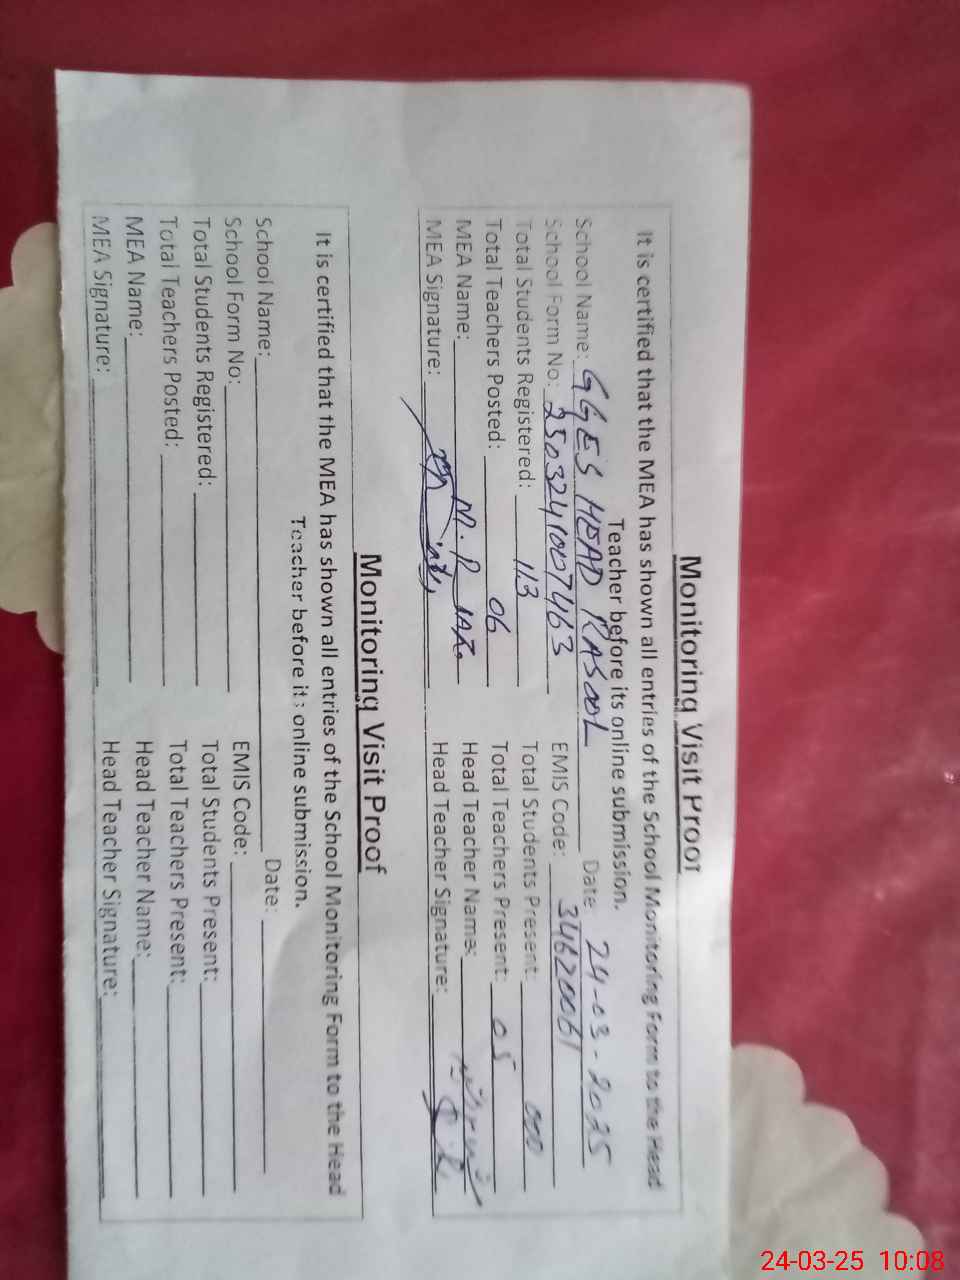 Monitoring Visit Proof
It is certified that the MEA has shown all entries of the School Monitoring Form to the Head
Teacher before its online submission.
School Name: GGES HEAD RASOOL Date: 24-03-2025
School Form No: 2503241007463 EMIS Code: 34620061
Total Students Registered: 113 Total Students Present: 000
Total Teachers Posted: 06 Total Teachers Present: 05
MEA Name: Head Teacher Name:
MEA Signature: Head Teacher Signature:
Monitoring Visit Proof
It is certified that the MEA has shown all entries of the School Monitoring Form to the Head
Teacher before its online submission.
School Name: Date:
School Form No: EMIS Code:
Total Students Registered: Total Students Present:
Total Teachers Posted: Total Teachers Present:
MEA Name: Head Teacher Name:
MEA Signature: Head Teacher Signature:
24-03-25 10:08